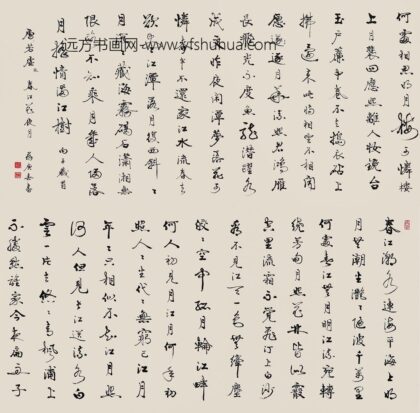 春江潮水連海平海上明
月共潮生灩灩隨波千萬里
何處春江無月明江流宛轉
繞芳甸月照花林皆似霰
空里流霜不覺飛汀上白沙
看不見江天一色無纖塵
皎皎空中孤月輪江畔
何人初見月江月何年初
照人人生代代無窮已江月
年年只相似不知江月照
何人但見長江送流水白
雲一片去悠悠青楓浦上
不勝愁誰家今夜扁舟子
何處相思明月樓可憐樓
上月裴回應照離人妝鏡台
玉戶簾中卷不去搗衣砧上
拂還來此時相望不相聞
願逐月華流照君鴻雁
長飛光不度魚龍潛躍水
成文昨夜閒潭夢落花可
憐春半不還家江水流春去
欲盡江潭落月復西斜斜
月沉沉藏海霧碣石瀟湘無
限路不知乘月幾人歸落
月搖情滿江樹
唐若虛春江花夜月
远方书画网-www.yfshuhua.com